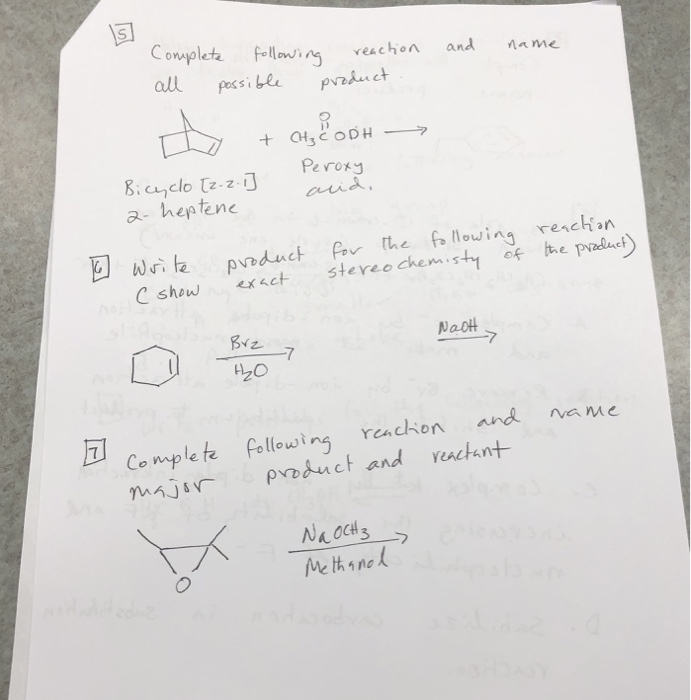 5
Complete following reaction and name
all possible product.
+ CH3 C O OH →
O
Bicyclo [2.2.1]
2-heptene
Peroxy
acid.
6 Write product for the following reaction
( show exact stereochemisty of the product)
Br2
H2O
NaOH
7 Complete following reaction and name
major product and reactant
O
NaOCH3
Methanol